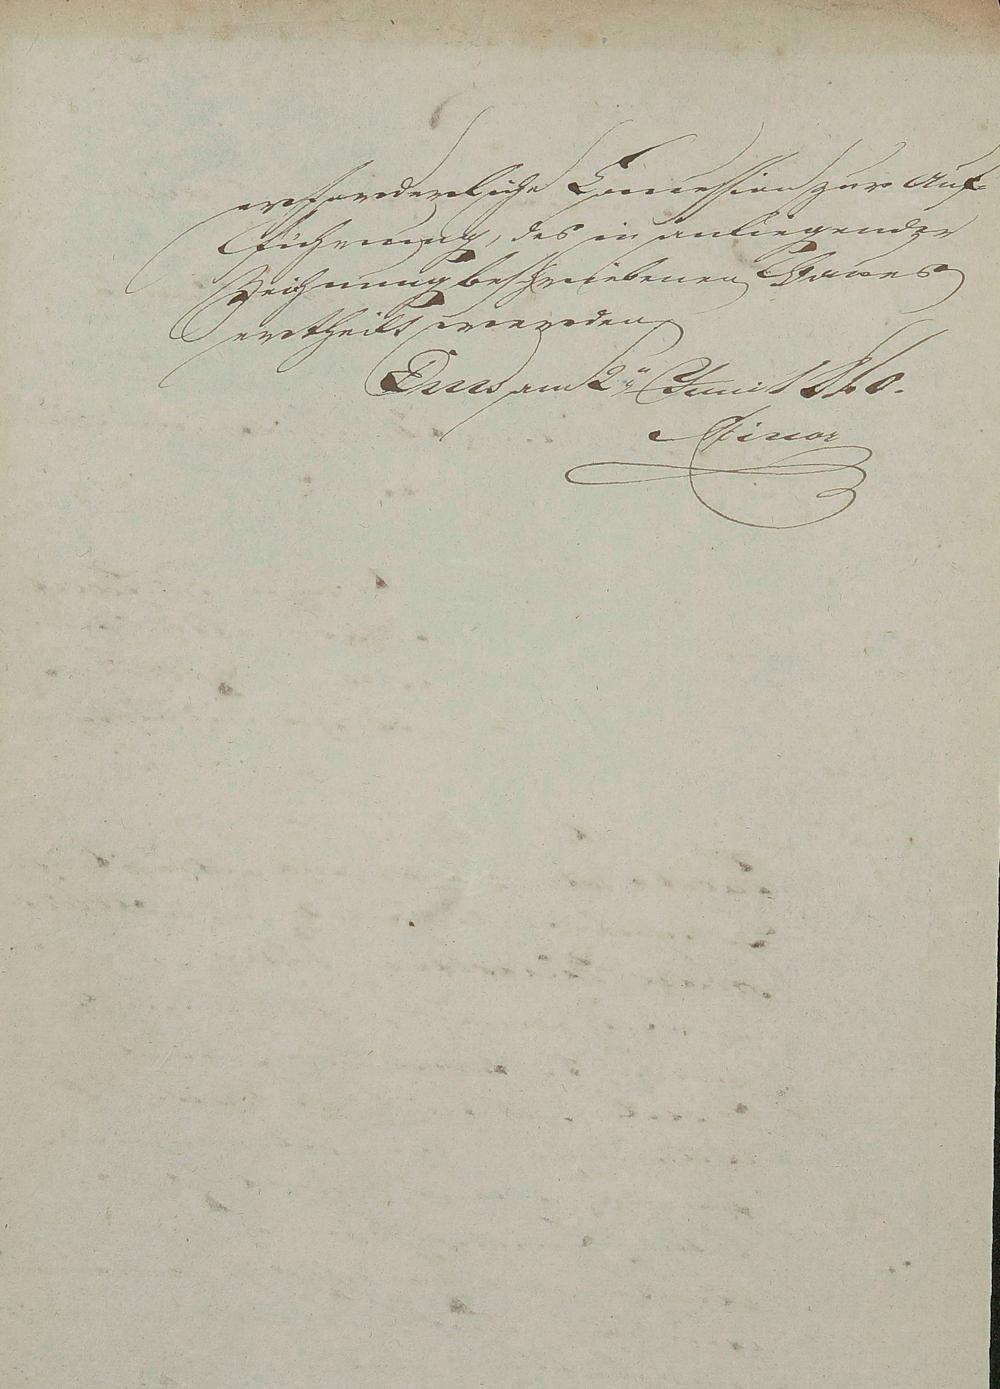 erforderliche Concession zur Auf-
führung, des in anliegender
Zeichnung beschriebenen Baues
ertheilt werden
Ems am 2ᵗ Juni 1860.